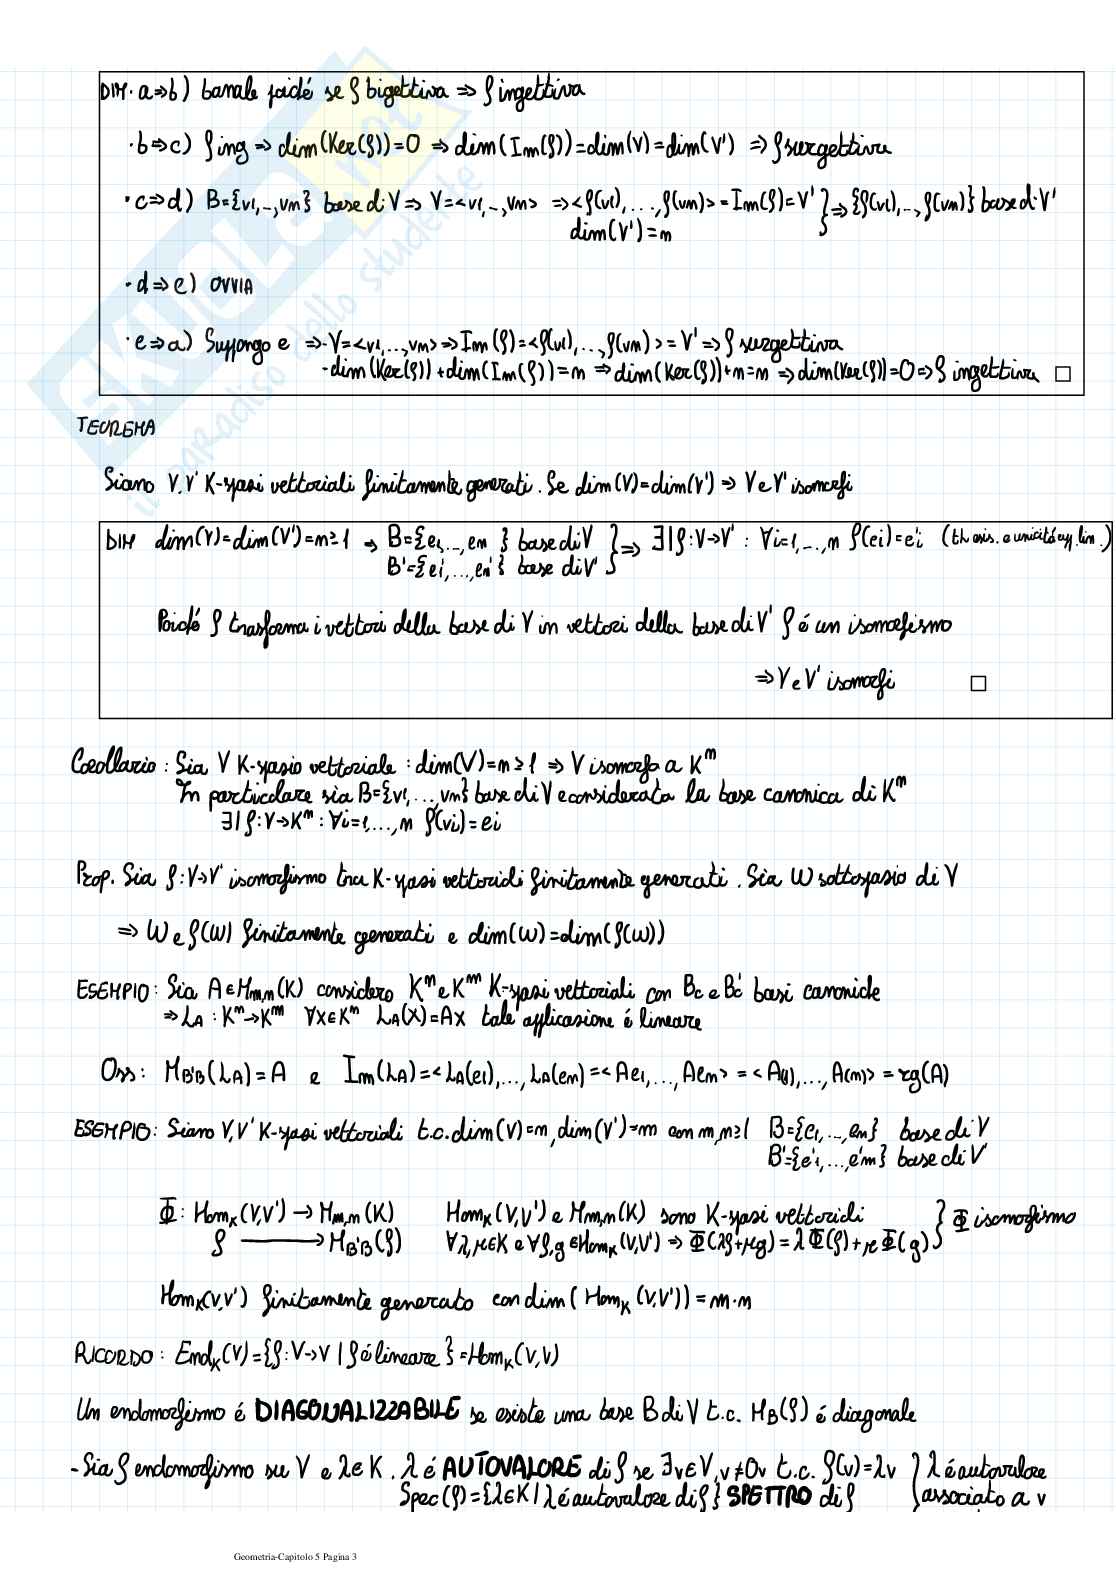 DIM. a⇒b) banale poiché se f bigettiva ⇒ f ingettiva
· b⇒c) f ing ⇒ dim(Ker(f))=0 ⇒ dim(Im(f))=dim(V)=dim(V') ⇒ f surgettiva
· c⇒d) B={v1,..,vn} base di V ⇒ V=<v1,..,vn> ⇒ <f(v1),...,f(vn)> = Im(f)=V' } ⇒ {f(v1),..,f(vn)} base di V'
dim(V')=n
· d⇒e) OVVIA
· e⇒a) Suppongo e ⇒ · V=<v1,...,vn> ⇒ Im(f)=<f(v1),...,f(vn)> = V' ⇒ f surgettiva
· dim(Ker(f))+dim(Im(f))=n ⇒ dim(Ker(f))+n=n ⇒ dim(Ker(f))=0 ⇒ f ingettiva □
TEOREMA
Siano V,V' K-spazi vettoriali finitamente generati. Se dim(V)=dim(V') ⇒ V e V' isomorfi
DIM dim(V)=dim(V')=n≥1 ⇒ B={e1,...,en} base di V } ⇒ ∃! f:V→V' : ∀i=1,...,n f(ei)=e'i (th esis. e unicità app. lin.)
B'={e1',...,en'} base di V'
Poiché f trasforma i vettori della base di V in vettori della base di V' f é un isomorfismo
⇒ V e V' isomorfi □
Corollario : Sia V K-spazio vettoriale : dim(V)=n≥1 ⇒ V isomorfo a Kⁿ
In particolare sia B={v1,...,vn} base di V e considerata la base canonica di Kⁿ
∃! f:V→Kⁿ : ∀i=1,...,n f(vi)=ei
Prop. Sia f:V→V' isomorfismo tra K-spazi vettoriali finitamente generati. Sia W sottospazio di V
⇒ W e f(W) finitamente generati e dim(W)=dim(f(W))
ESEMPIO: Sia A∈Mm,n(K) considero Kⁿ e Kᵐ K-spazi vettoriali con Bc e Bc' basi canoniche
⇒ LA : Kⁿ→Kᵐ ∀x∈Kⁿ LA(x)=Ax tale applicazione é lineare
Oss: MB'B(LA)=A e Im(LA)=<LA(e1),...,LA(en)=<Ae1,...,Aen> = <A(1),...,A(n)> = rg(A)
ESEMPIO: Siano V,V' K-spazi vettoriali t.c. dim(V)=n, dim(V')=m con m,n≥1 B={e1,...,en} base di V
B'={e'1,...,e'm} base di V'
Φ: HomK(V,V') → Mm,n(K) HomK(V,V') e Mm,n(K) sono K-spazi vettoriali } Φ isomorfismo
f → MB'B(f) ∀λ,μ∈K e ∀f,g∈HomK(V,V') ⇒ Φ(λf+μg)=λΦ(f)+μΦ(g)
HomK(V,V') finitamente generato con dim(HomK(V,V'))=m·n
RICORDO: EndK(V)={f:V→V | f é lineare}=HomK(V,V)
Un endomorfismo é DIAGONALIZZABILE se esiste una base B di V t.c. MB(f) é diagonale
- Sia f endomorfismo su V e λ∈K. λ é AUTOVALORE di f se ∃v∈V, v≠0v t.c. f(v)=λv } λ é autovalore
Spec(f)={λ∈K | λ é autovalore di f} SPETTRO di f associato a v
Geometria-Capitolo 5 Pagina 3
SKUOLA.net
il paradiso dello studente